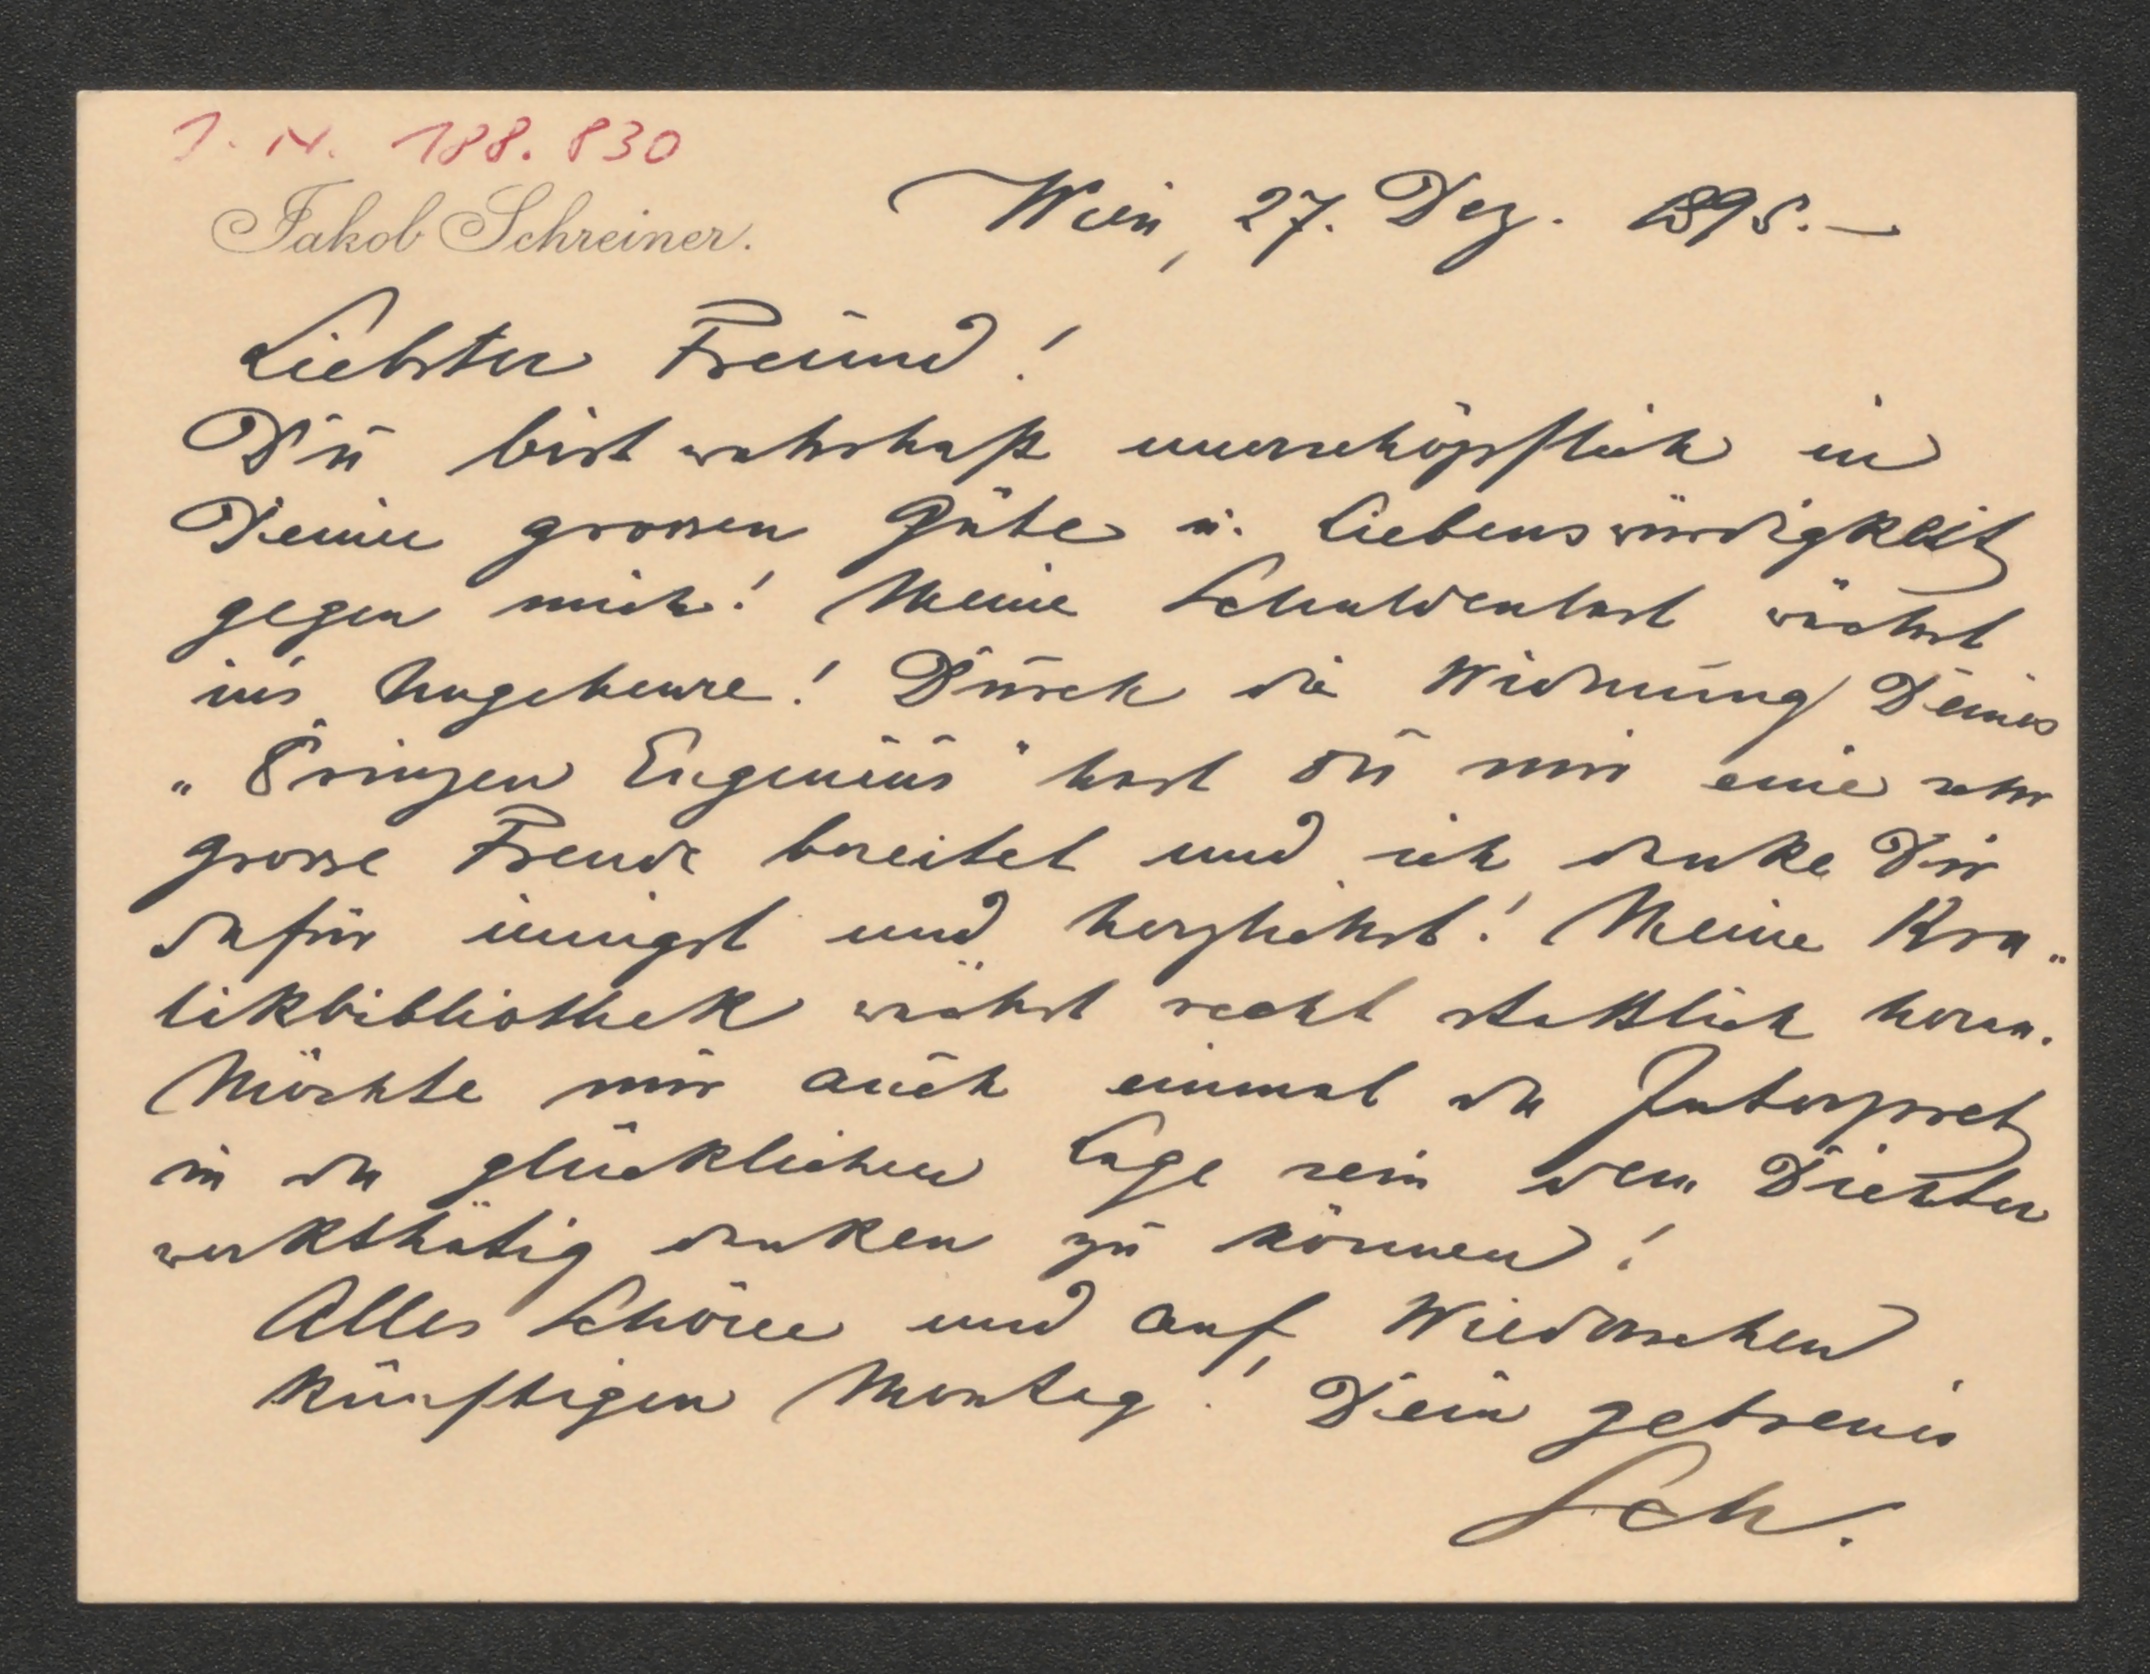 J. N. 188.830
Jakob Schreiner.
Wien, 27. Dez. 1895.—
Liebster Freund!
Du bist wahrhaft unerschöpflich in
Deiner grossen Güte u. Liebenswürdigkeit
gegen mich! Meine Schuldenlast wächst
ins Ungeheure! Durch die Widmung Deines
„Prinzen Eugenius" hast Du mir eine sehr
grosse Freude bereitet und ich danke Dir
dafür innigst und herzlichst! Meine Kra„
likbibliothek wächst recht stattlich heran.
Möchte nur auch einmal der Interpret
in der glücklichen Lage sein dem Dichter
werkthätig danken zu können!
Alles Schöne und auf Wiedersehen
künftigen Montag! Dein getreuer
Sch.